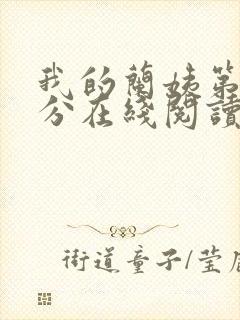 我的蘭姊第
分在綫閱讀
街道童子/莹